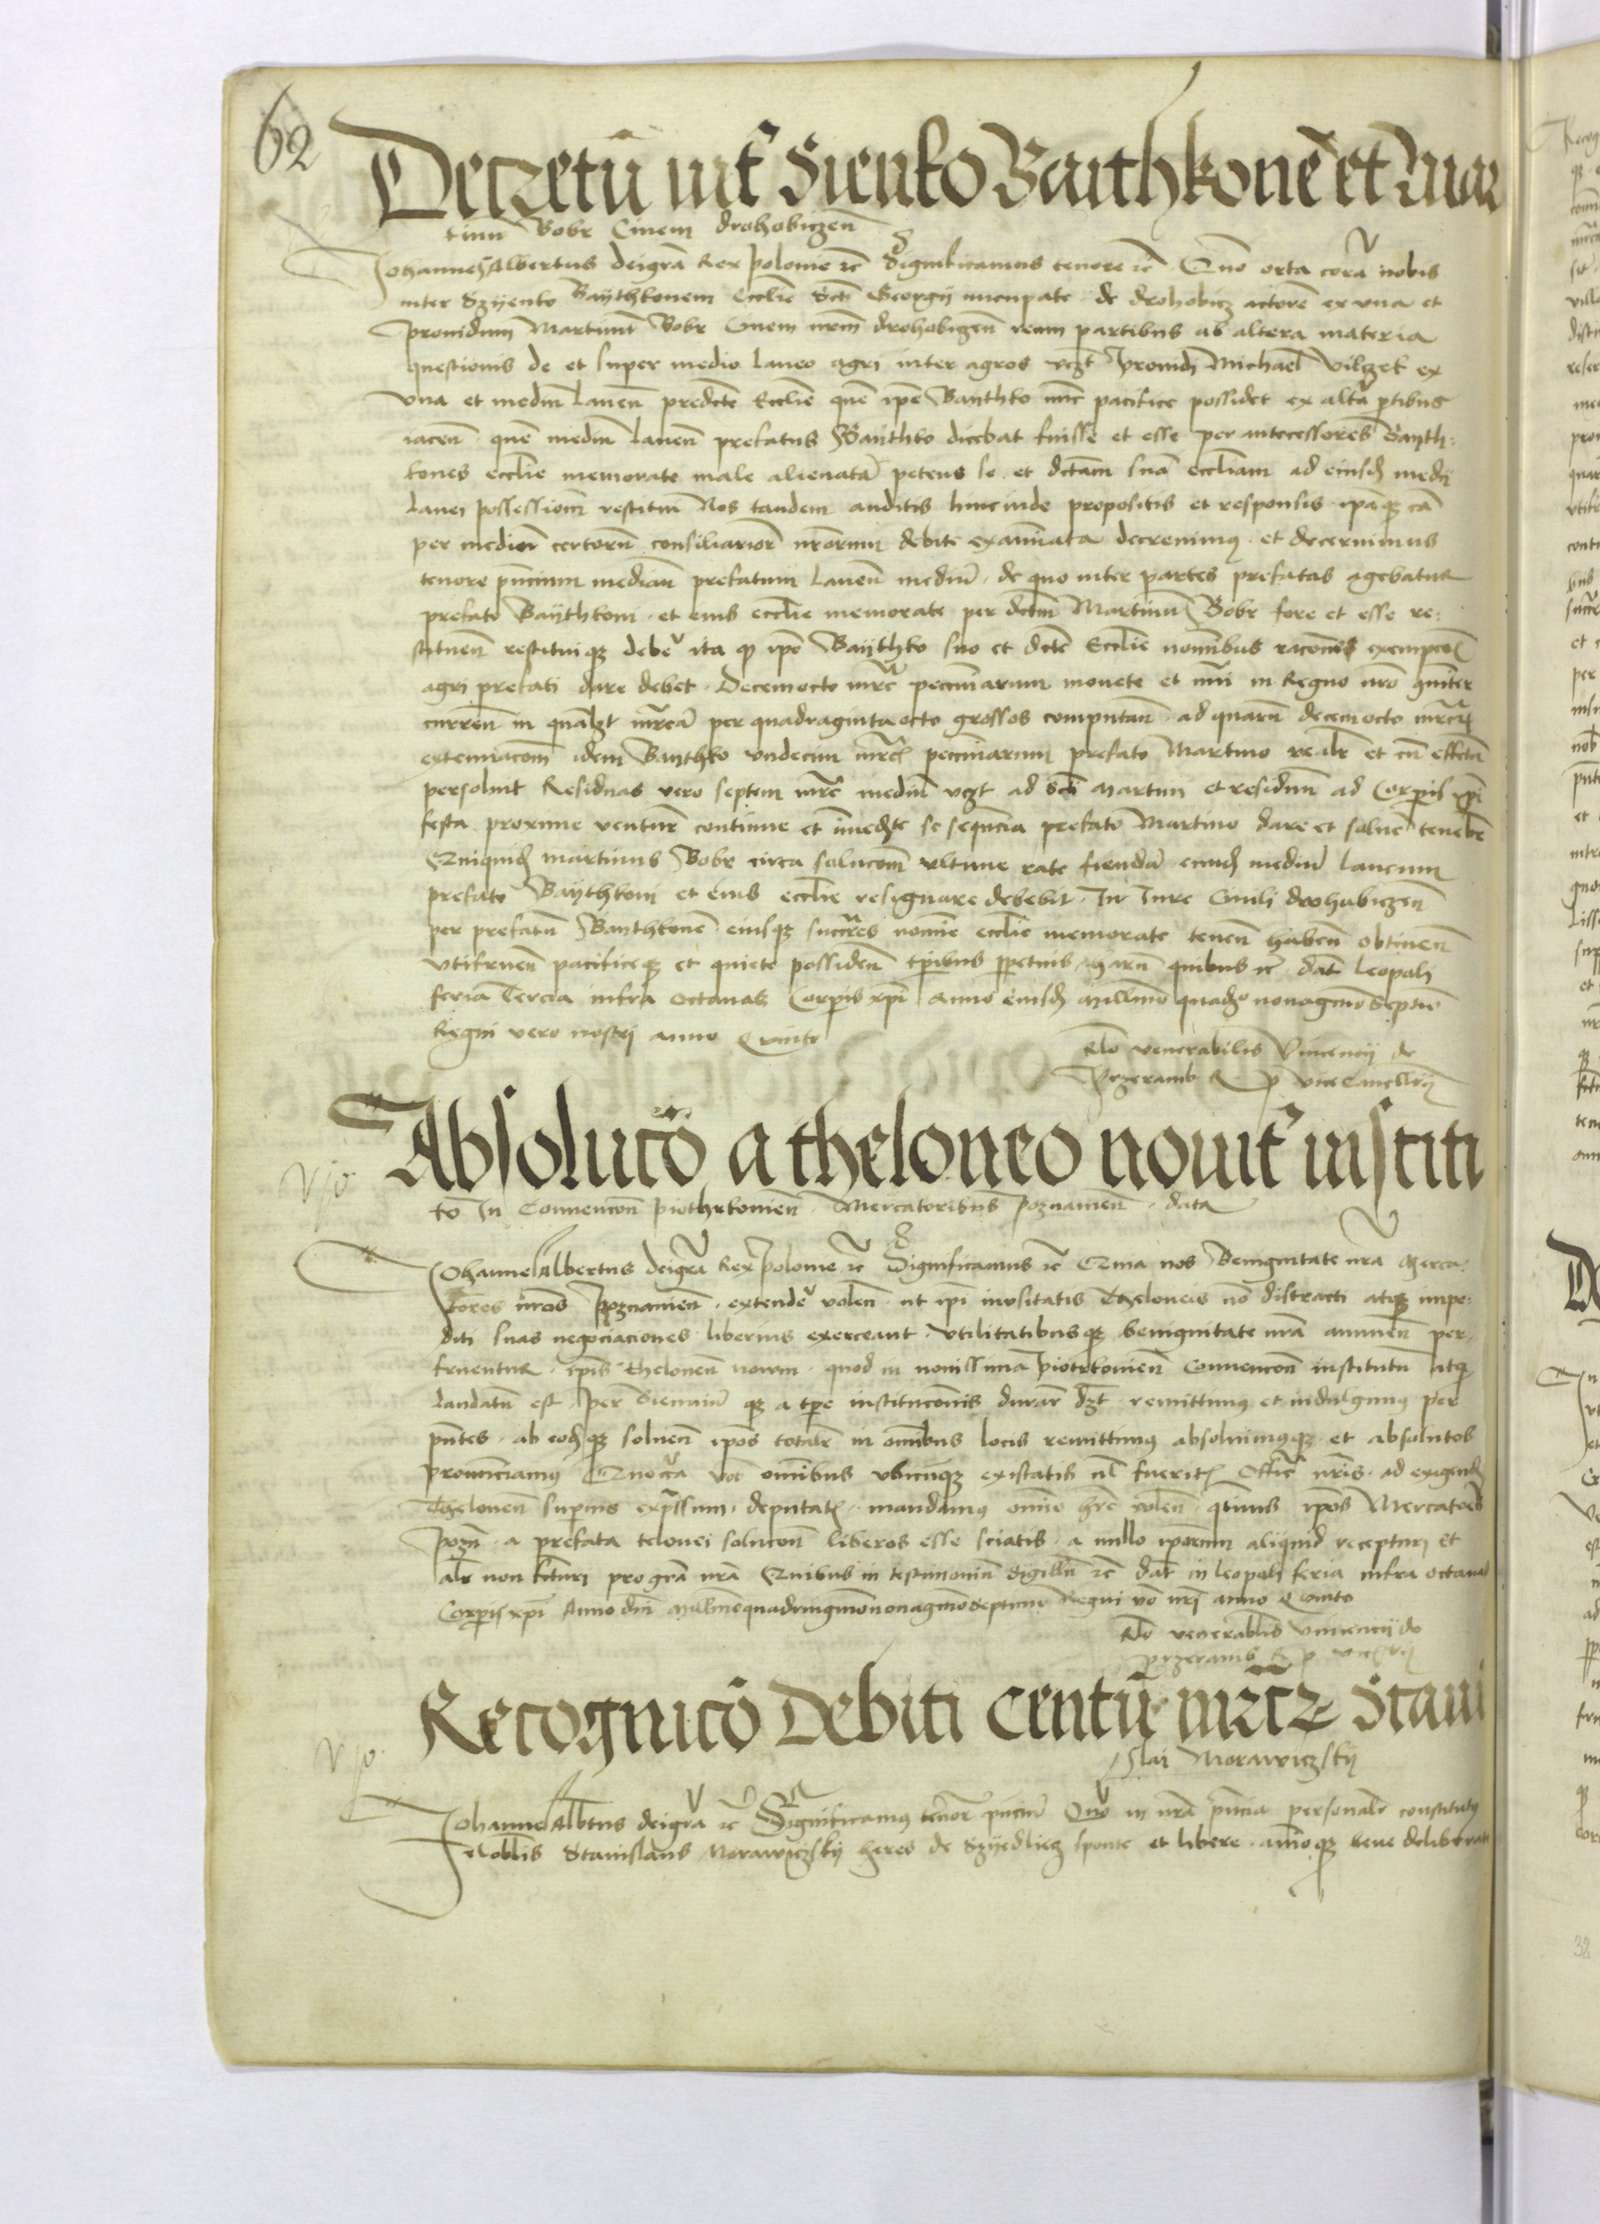 62
Decretū int̄ Sienko Baithkonē et Mar
tinū Bobr Civem drohobiczen̄
Johannes Albertus dei gr̄a Rex polonie zc̄ Significamus tenore zc̄ Quō orta corā nobis
inter Szyenko Baythkonem Ecclie Scti Georgij nuncupate de drohobicz actorē ex vna et
providum Martinū Bobr Civem nrm̄ drohobiczen̄ reum partibus ab altera materia
questionis de et super medio laneo agri inter agros vczt providi Michael Vilczek ex
vna et mediū laneū predicte Ecclie quē ipē Baithko nūc pacifice possidet ex altā ptibus
iacen̄ quē mediū laneū prefatus Baythko dicebat fuisse et esse per antecessores Bayth:
kones ecclie memorate male alienatā petens se et dctam suā eccliam ad eiusd medij
lanei possessionem restitui Nos tandem auditis hincinde propositis et responsis ipāq cā
per mediū certorū consiliariorū nrorum debite examinata decrevimus et decernimus
tenore pn̄cium mediū prefatum laneū mediū de quo inter partes prefatas agebatur
prefato Baythkoni et eius ecclie memorate per dctm Martinū Bobr fore et esse re:
stituen̄ restituiq debe ita q ipē Baythko suo et dcte Ecclie nominibus racionis exempcois
agri prefati dare debet Decemocto mrc pecuniarum monete et nūi in Regno nrō cōiter
curren̄ in qualzt mrcā per quadragintaocto grossos computan̄ ad quarū decemocto mrcrz
extenuacōem idem Baythko vndecim mrcz pecuniarum prefato Martino realr et cū effctū
persolvit Residuas vero septem mrc̄ mediū vczt ad Scti Martini et residuum ad Corpis xpi
festa proxime ventur continue et imediate se sequēcia prefato Martino dare et solvē tenebt
Quiquid martinus Bobr circa solucōem vltime rate fiendā eund mediū laneum
prefato Baythkoni et eius ecclie resignare debebit In Jure Civili drohobiczen̄
per prefatū Baythkonē eiusq succres nomine ecclie memorate tenen̄ haben̄ obtinen̄
vtifruen̄ pacificeq et quiete possiden̄ tpibus ppetuis Harū quibus zc̄ dat Leopoli
feria Tercia infra octavas Corpis xpi Anno eiusd Millmo quadgo nonagmo Septio
Regni vero nostri anno Quinto
Rlo venerabilis Vincencij de
Przeramb R p Vicecancellrij
Absolucō a theloneo novit̄ institi
to In Convencōn piothrkovien̄ Mercatoribus poznanien̄ data
Johannes Albertus dei gr̄a Rex polonie zc̄ Significamus zc̄ Quia nos benignitate nrā Merca:
tores nrōs poznanien̄ extendē volen̄ ut ipī inusitatis theloneis nō distracti atq impe:
diti suas negociaciones liberius exerceant vtilitatibusq benignitate nrā annuen̄ per:
fruentur ipīs theloneū novum quod in novissima piotrkovien̄ Convencōn institutū atq
laudatū est per bienniū q a tpe institucōnis durar dzt remittimus et indulgimus per
pn̄tes ab eodq solven̄ ipōs totalr in omnibus locis remittimus absolvimusq et absolutos
pronunciamus Quocca vob omibus vbicuq existatis vl fueritz Offic nris ad exigend
Theloneū superius expressum deputatz mandamus omio hrē volen̄ qtinus ipōs Mercatores
pozn̄ a prefata telonei solucōn liberos esse sciatis a nullo ipōrum aliquid recepturi et
alr non fcturi pro gra nrā Quibus in testimoniū Sigillū zc̄ dat in leopoli feria infra octavas
Corpis xpi Anno dni Millmoquadringmōnonagmōseptimo Regni vō nri anno Quinto
Rlo venerablis vincencij de
przeramb R p Vicecrij
Recognicō Debiti Centū mrcz Stani
slai Morawiczskij
Johannes Albtus dei grā zc̄ Significamus tenor pn̄ciū Quō in nrā pn̄cia personalr constitutus
Noblis Stanislaus Morawiczskij heres de Szyedlicz sponte et libere aniōq bene deliberato